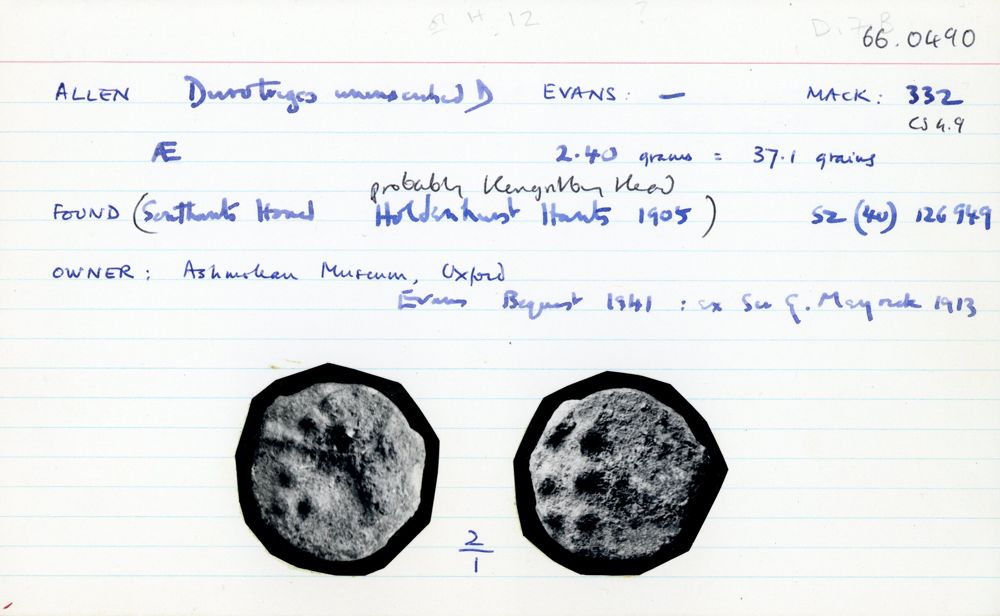 or H. 12 ? D. 7 B
66.0490
ALLEN Durotriges uninscribed D EVANS: — MACK: 332
CS 4.9
Æ 2.40 grams = 37.1 grains
probably Hengistbury Head
FOUND (Southants Hoard Holdenhurst Hants 1905) SZ (40) 126949
OWNER: Ashmolean Museum, Oxford
Evans Bequest 1941 : ex Sir G. 1913
2
1